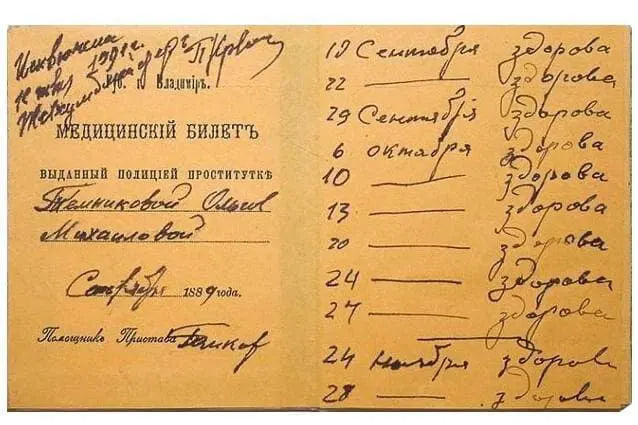 1891 г.
Губ. г. Владиміръ.
МЕДИЦИНСКІЙ БИЛЕТЪ
ВЫДАННЫЙ ПОЛИЦІЕЙ ПРОСТИТУТКѢ
Ольгѣ
Михайловой
Сентября 1889 года.
Помощникъ Пристава
19 Сентября здорова
22 — здорова
29 Сентября здорова
6 октября здорова
10 — здорова
13 — здорова
20 — здорова
24 — здорова
27 — здорова
24 ноября здорова
28 — здорова